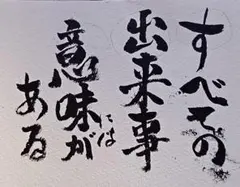 すべての
出来事
には
意味が
ある